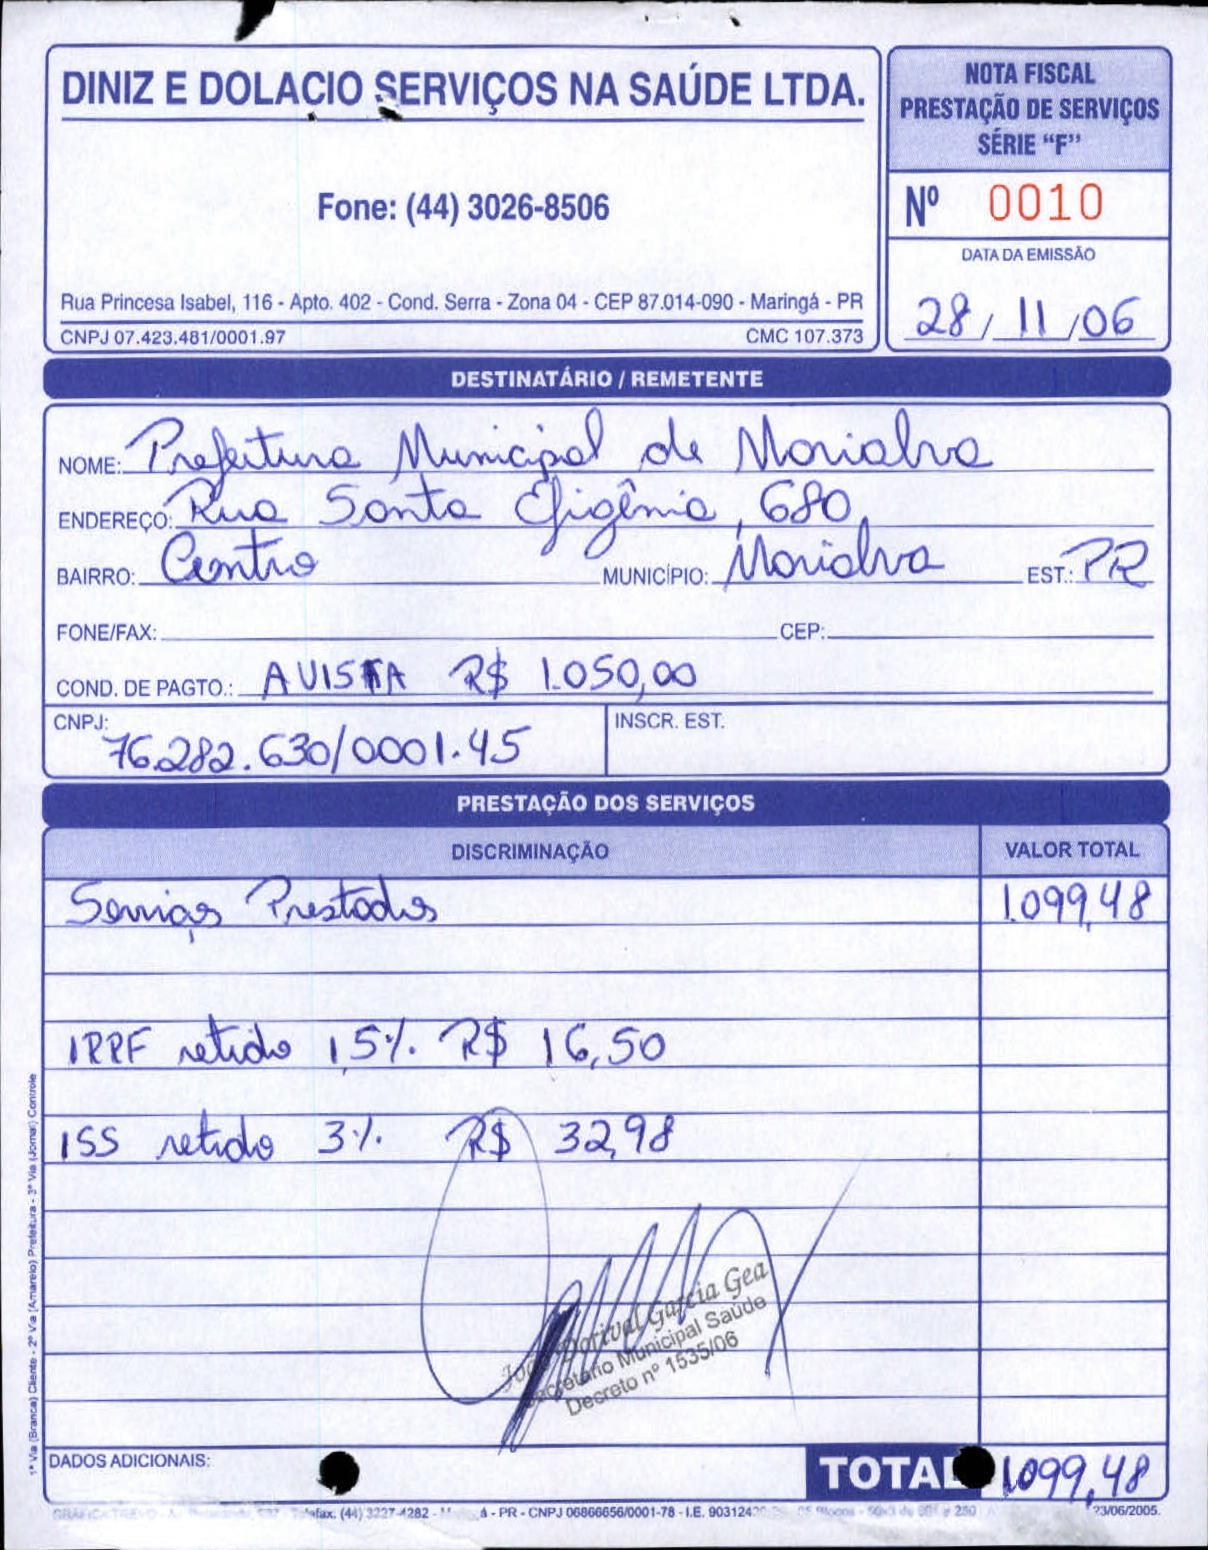 DINIZ E DOLACIO SERVIÇOS NA SAÚDE LTDA.
Fone: (44) 3026-8506
Rua Princesa Isabel, 116 - Apto. 402 - Cond. Serra - Zona 04 - CEP 87.014-090 - Maringá - PR
CNPJ 07.423.481/0001.97 CMC 107.373
NOTA FISCAL
PRESTAÇÃO DE SERVIÇOS
SÉRIE “F”
Nº 0010
DATA DA EMISSÃO
28/11/06
DESTINATÁRIO / REMETENTE
NOME: Prefeitura Municipal de Marialva
ENDEREÇO: Rua Santa Efigênia, 680,
BAIRRO: Centro MUNICÍPIO: Marialva EST.: PR
FONE/FAX: CEP:
COND. DE PAGTO.: A VISTA R$ 1.050,00
CNPJ: 76.282.630/0001.45 INSCR. EST.
PRESTAÇÃO DOS SERVIÇOS
DISCRIMINAÇÃO VALOR TOTAL
Serviços Prestados 1.099,48
IRPF retido 1,5% R$ 16,50
ISS retido 3% R$ 32,98
João Dorival Garcia Gea
Secretário Municipal Saúde
Decreto nº 1535/06
DADOS ADICIONAIS: TOTAL 1.099,48
(44) 3227-4282 - PR - CNPJ 06866656/0001-78 - I.E. 903124 23/06/2005.
1ª Via (Branca) Cliente - 2ª Via (Amarelo) Prefeitura - 3ª Via (Jornal) Controle